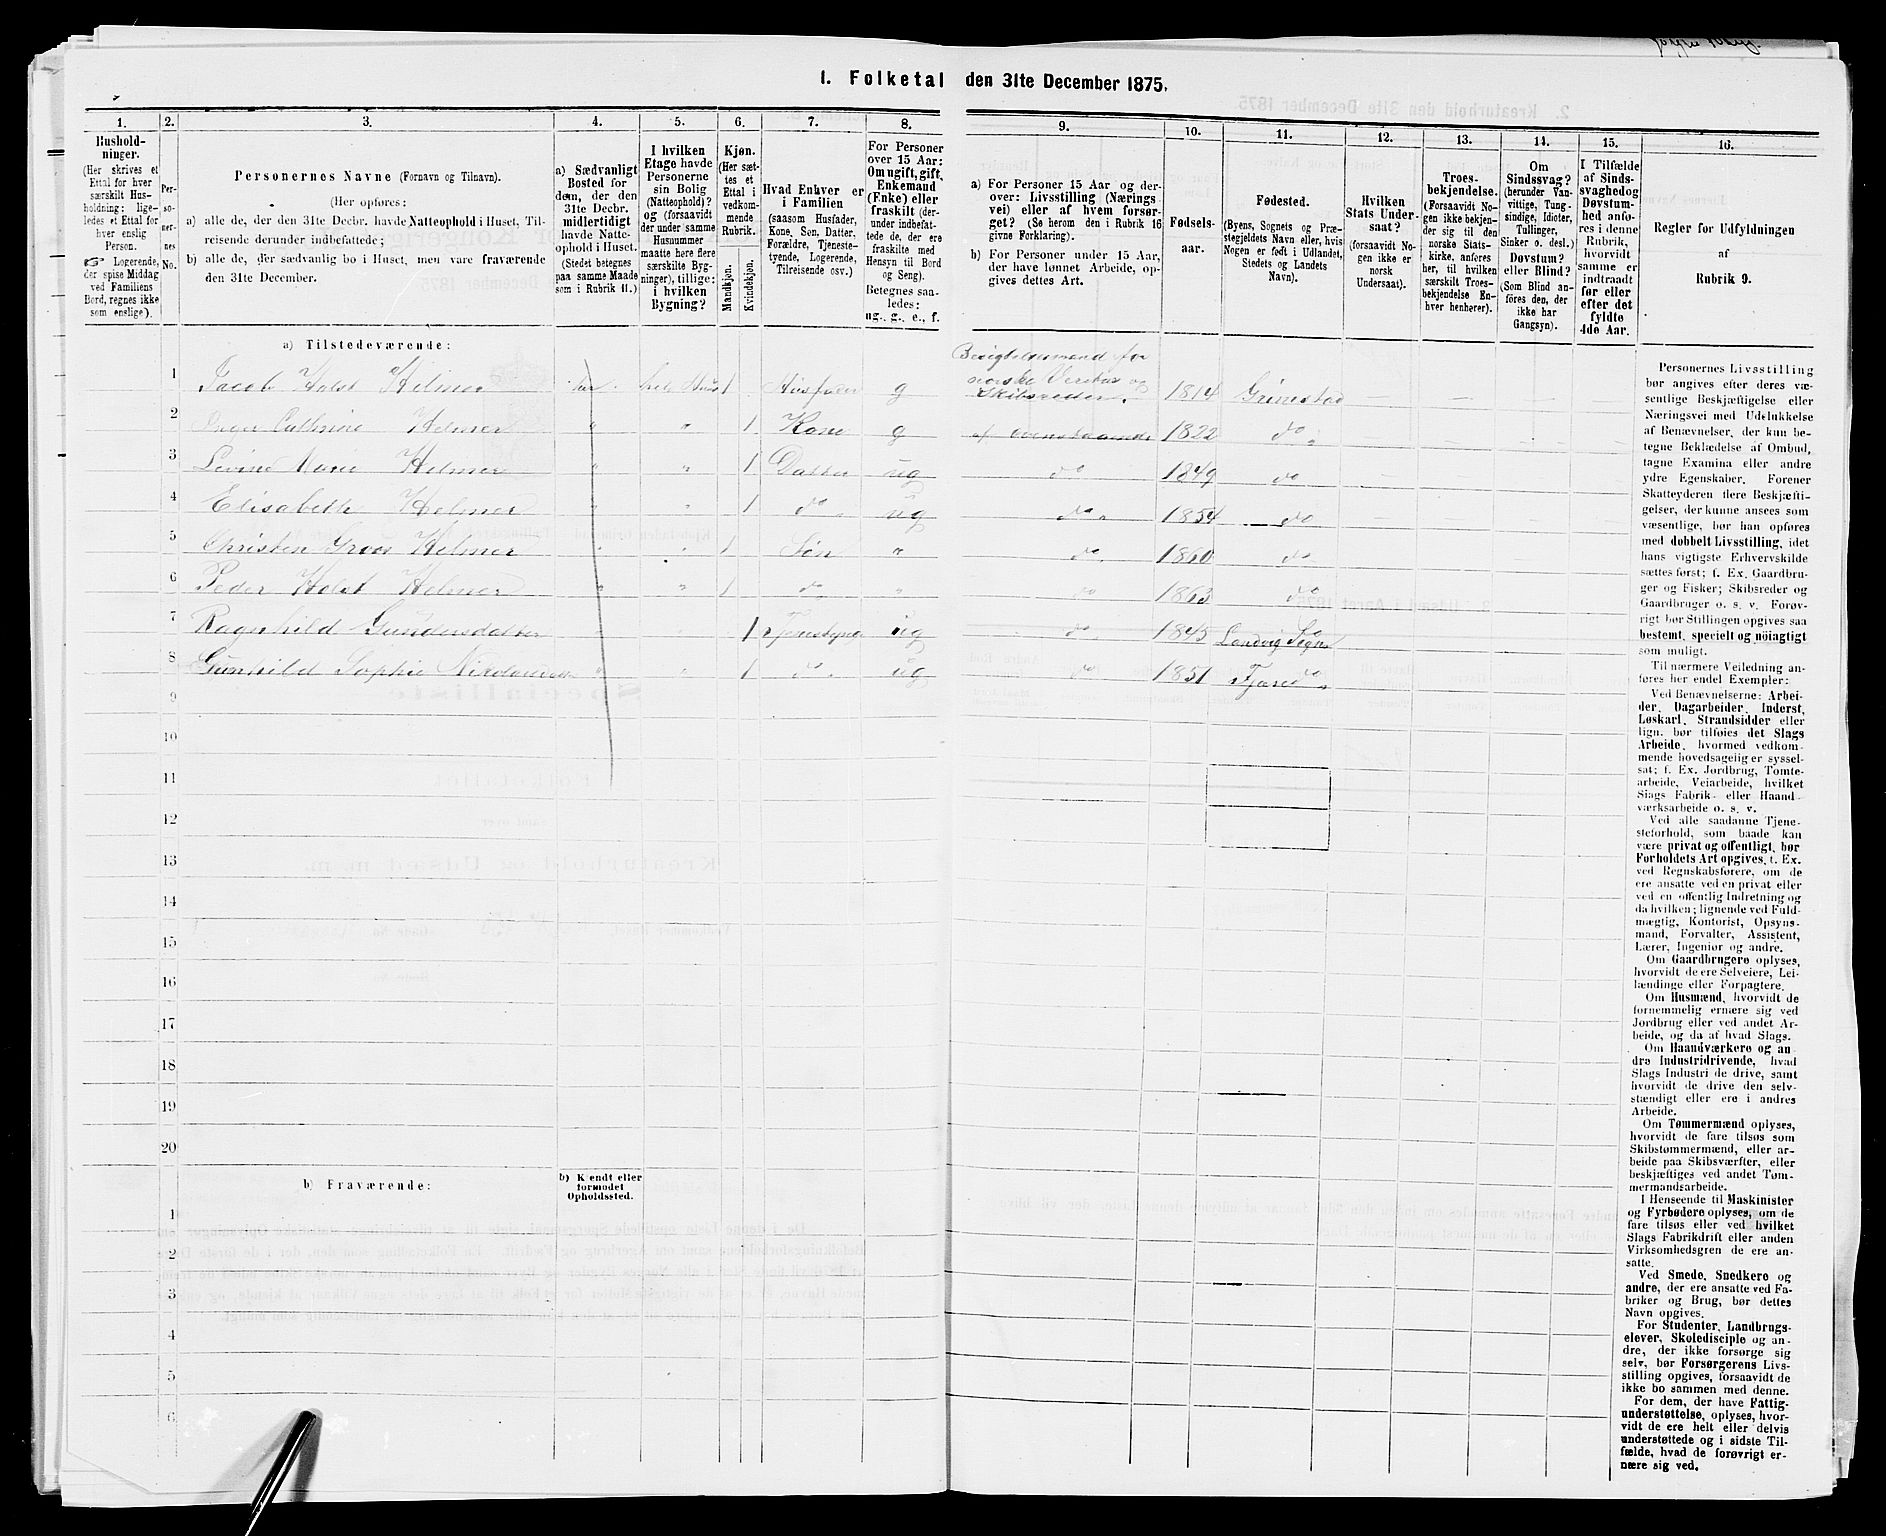 1. Folketal den 31te December 1875.
1.
Hushold-
ninger.
(Her skrives et
Ettal for hver
særskilt Hus-
holdning; lige-
ledes et Ettal for
hver enslig
Person.
☞ Logerende,
der spise Middag
ved Familiens
Bord, regnes ikke
som enslige).
2.
Per-
so-
ner-
nes
No.
3.
Personernes Navne (Fornavn og Tilnavn).
(Her opføres:
a) alle de, der den 31te Decbr. havde Natteophold i Huset, Til-
reisende derunder indbefattede;
b) alle de, der sædvanlig bo i Huset, men vare fraværende
den 31te December.
4.
a) Sædvanligt
Bosted for
dem, der den
31te Decbr.
midlertidigt
havde Natte-
ophold i Huset.
(Stedet betegnes
paa samme Maade
som i Rubrik 11.)
5.
I hvilken
Etage havde
Personerne
sin Bolig
(Natteophold)?
og (forsaavidt
der under samme
Husnummer
maatte høre flere
særskilte Byg-
ninger), tillige:
i hvilken
Bygning?
6.
Kjøn.
(Her sæt-
tes et
Ettal i
vedkom-
mende
Rubrik.
Mandkjøn.
Kvindekjøn.
7.
Hvad Enhver er
i Familien
(saasom Husfader,
Kone, Søn, Datter,
Forældre, Tjeneste-
tyende, Logerende,
Tilreisende osv.)
8.
For Personer
over 15 Aar:
Om ugift, gift,
Enkemand
(Enke) eller
fraskilt (der-
under indbefat-
tede de, der ere
fraskilte med
Hensyn til Bord
og Seng).
Betegnes saa-
ledes:
ug., g., e., f.
9.
a) For Personer 15 Aar og der-
over: Livsstilling (Nærings-
vei) eller af hvem forsør-
get? (Se herom den i Rubrik 16
givne Forklaring).
b) For Personer under 15 Aar,
der have lønnet Arbeide, op-
gives dettes Art.
10.
Fødsels-
aar.
11.
Fødested.
(Byens, Sognets og Præ-
stegjeldets Navn eller, hvis
Nogen er født i Udlandet,
Stedets og Landets
Navn).
12.
Hvilken
Stats Under-
saat?
(forsaavidt No-
gen ikke er
norsk
Undersaat).
13.
Troes-
bekjendelse.
(Forsaavidt No-
gen ikke bekjen-
der sig til den
norske Stats-
kirke, anføres
her, til hvilken
særskilt Troes-
bekjendelse En-
hver henhører).
14.
Om
Sindssvag?
(herunder Van-
vittige, Tung-
sindige, Idioter,
Tullinger,
Sinker o. desl.)
Døvstum?
eller Blind?
(Som Blind an-
føres den, der
ikke har
Gangsyn).
15.
I Tilfælde
af Sinds-
svaghed og
Døvstum-
hed anfø-
res i denne
Rubrik,
hvorvidt
samme er
indtraadt
før eller
efter det
fyldte
4de Aar.
16.
Regler for Udfyldningen
af
Rubrik 9.
a) Tilstedeværende:
1 Jacob Holst Helmer her hele Huset 1 Husfader g Besigtelsesmand for
norske Veritas og
Skibsreder. 1814 Grimstad — — — —
2 Inger Cathrine Helmer " " 1 Kone g af ovenstaaende 1822 do
3 Levine Marie Helmer " " 1 Datter ug do 1849 do
4 Elisabeth Helmer " " 1 do ug do 1854 do
5 Christen Groos Helmer " " 1 Søn " do 1860 do
6 Peder Holst Helmer " " 1 do " do 1863 do
7 Ragnhild Gundersdatter " " 1 Tjenestepige ug do 1845 Landvig Sogn
8 Gunhild Sophie " " 1 do ug do 1851 Fjære do
9
10
11
12
13
14
15
16
17
18
19
20
b) Fraværende:
b) Kjendt eller
formodet
Opholdssted.
1
2
3
4
5
6
Personernes Livsstilling
bør angives efter deres væ-
sentlige Beskjæftigelse eller
Næringsvei med Udelukkelse
af Benævnelser, der kun be-
tegne Beklædelse af Ombud,
tagne Examina eller andre
ydre Egenskaber. Forener
Skatteyderen flere Beskjæfti-
gelser, der kunne ansees som
væsentlige, bør han opføres
med dobbelt Livsstilling, idet
hans vigtigste Erhvervskilde
sættes først; f. Ex. Gaardbru-
ger og Fisker; Skibsreder og
Gaardbruger o. s. v. Forøv-
rigt bør Stillingen opgives saa
bestemt, specielt og nøiagtigt
som muligt.
Til nærmere Veiledning an-
føres her endel Exempler:
Ved Benævnelserne: Arbei-
der, Dagarbeider, Inderst,
Løskarl, Strandsidder eller
lign. bør tilføies det Slags
Arbeide, hvormed vedkom-
mende hovedsagelig er syssel-
sat; f. Ex. Jordbrug, Tomte-
arbeide, Veiarbeide, hvilket
Slags Fabrik- eller Haand-
værksarbeide o. s. v.
Ved alle saadanne Tjene-
steforhold, som baade kan
være privat og offentligt, bør
Forholdets Art opgives, t. Ex.
ved Regnskabsførere, om de
ere ansatte ved en privat eller
ved en offentlig Indretning og
da hvilken; lignende ved Fuld-
mægtig, Kontorist, Opsyns-
mand, Forvalter, Assistent,
Lærer, Ingeniør og andre.
Om Gaardbrugere oplyses,
hvorvidt de ere Selveiere, Lei-
lændinge eller Forpagtere.
Om Husmænd, hvorvidt de
fornemmelig ernære sig ved
Jordbrug eller ved andet Ar-
beide, og da af hvad Slags.
Om Haandværkere og an-
dre Industridrivende, hvad
Slags Industri de drive, samt
hvorvidt de drive den selv-
stændigt eller ere i andres
Arbeide.
Om Tømmermænd oplyses,
hvorvidt de fare tilsøs som
Skibstømmermænd, eller ar-
beide paa Skibsværfter, eller
beskjæftiges ved andet Tøm-
mermandsarbeide.
I Henseende til Maskinister
og Fyrbødere oplyses, om de
fare tilsøs eller ved hvilket
Slags Fabrikdrift eller anden
Virksomhedsgren de ere an-
satte.
Ved Smede, Snedkere og
andre, der ere ansatte ved Fa-
briker og Brug, bør dettes
Navn opgives.
For Studenter, Landbrugs-
elever, Skoledisciple og an-
dre, der ikke forsørge sig
selv, bør Forsørgerens Livs-
stilling opgives, forsaavidt de
ikke bo sammen med denne.
For dem, der have Fattig-
understøttelse, oplyses, hvor-
vidt de ere helt eller delvis
understøttede og i sidste Til-
fælde, hvad de forøvrigt er-
nære sig ved.